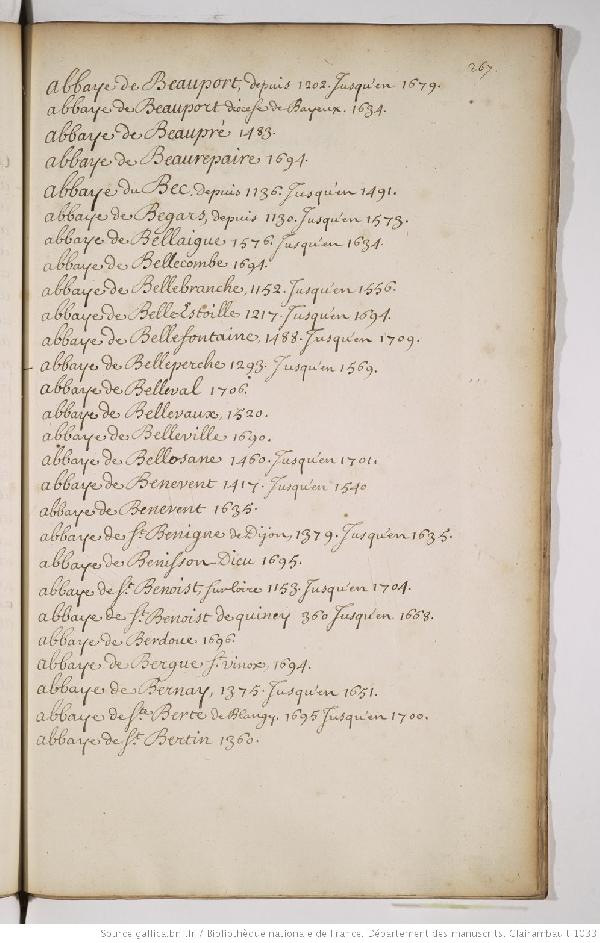 267.
abbaye de Beauport, depuis 1202. Jusqu'en 1679.
abbaye de Beauport diocese de Bayeux. 1634.
abbaye de Beaupré 1483.
abbaye de Beaurepaire 1694.
abbaye du Bec, depuis 1136. Jusqu'en 1491.
abbaye de Begars, depuis 1130. Jusqu'en 1573.
abbaye de Bellaigue 1576. Jusqu'en 1634.
abbaye de Bellecombe 1694.
abbaye de Bellebranche, 1152. Jusqu'en 1556.
abbaye de Belle Estoille 1217. Jusqu'en 1694.
abbaye de Bellefontaine, 1488. Jusqu'en 1709.
abbaye de Belleperche 1293. Jusqu'en 1569.
abbaye de Belleval 1706.
abbaye de Bellevaux, 1520.
abbaye de Belleville 1690.
abbaye de Bellosane 1460. Jusqu'en 1701.
abbaye de Benevent 1417. Jusqu'en 1540
abbaye de Benevent 1635.
abbaye de St. Benigne de Dijon, 1379. Jusqu'en 1635.
abbaye de Benisson Dieu 1695.
abbaye de St. Benoist, sur Loire 1153. Jusqu'en 1704.
abbaye de St. Benoist de quincy 360 Jusqu'en 1668.
abbaye de Berdoue 1696.
abbaye de Bergue St. vinox, 1694.
abbaye de Bernay, 1375. Jusqu'en 1651.
abbaye de Ste. Berte de Blangy. 1695 Jusqu'en 1700.
abbaye de St. Bertin 1360.
Source gallica.bnf.fr / Bibliothèque nationale de France. Département des manuscrits. Clairambault 1033